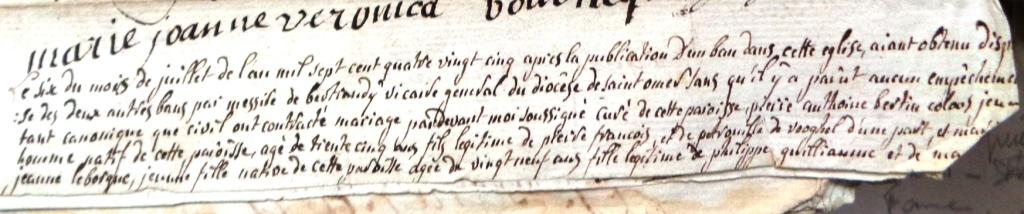 marie joanne veronica
Le six du mois de juillet de l'an mil sept cent quatre vingt cinq apres la publication d'un ban dans cette eglise, aiant obtenu dispen
:se des deux autres bans par messire de vicaire general du diocêse de saint omer sans qu'il y a parût aucun empêcheme
tant canonique que civil ont contracté mariage pardevant moi soussigné curé de cette paroisse pierre anthoine bertin colaos jeu
homme natif de cette paroisse, agé de trente cinq ans fils legitime de pierre françois et de petronille de vooghel d'une part, et mari
jeanne leborgne, jeune fille native de cette paroisse agée de vingt neuf ans fille legitime de philippe guillianme et de ma